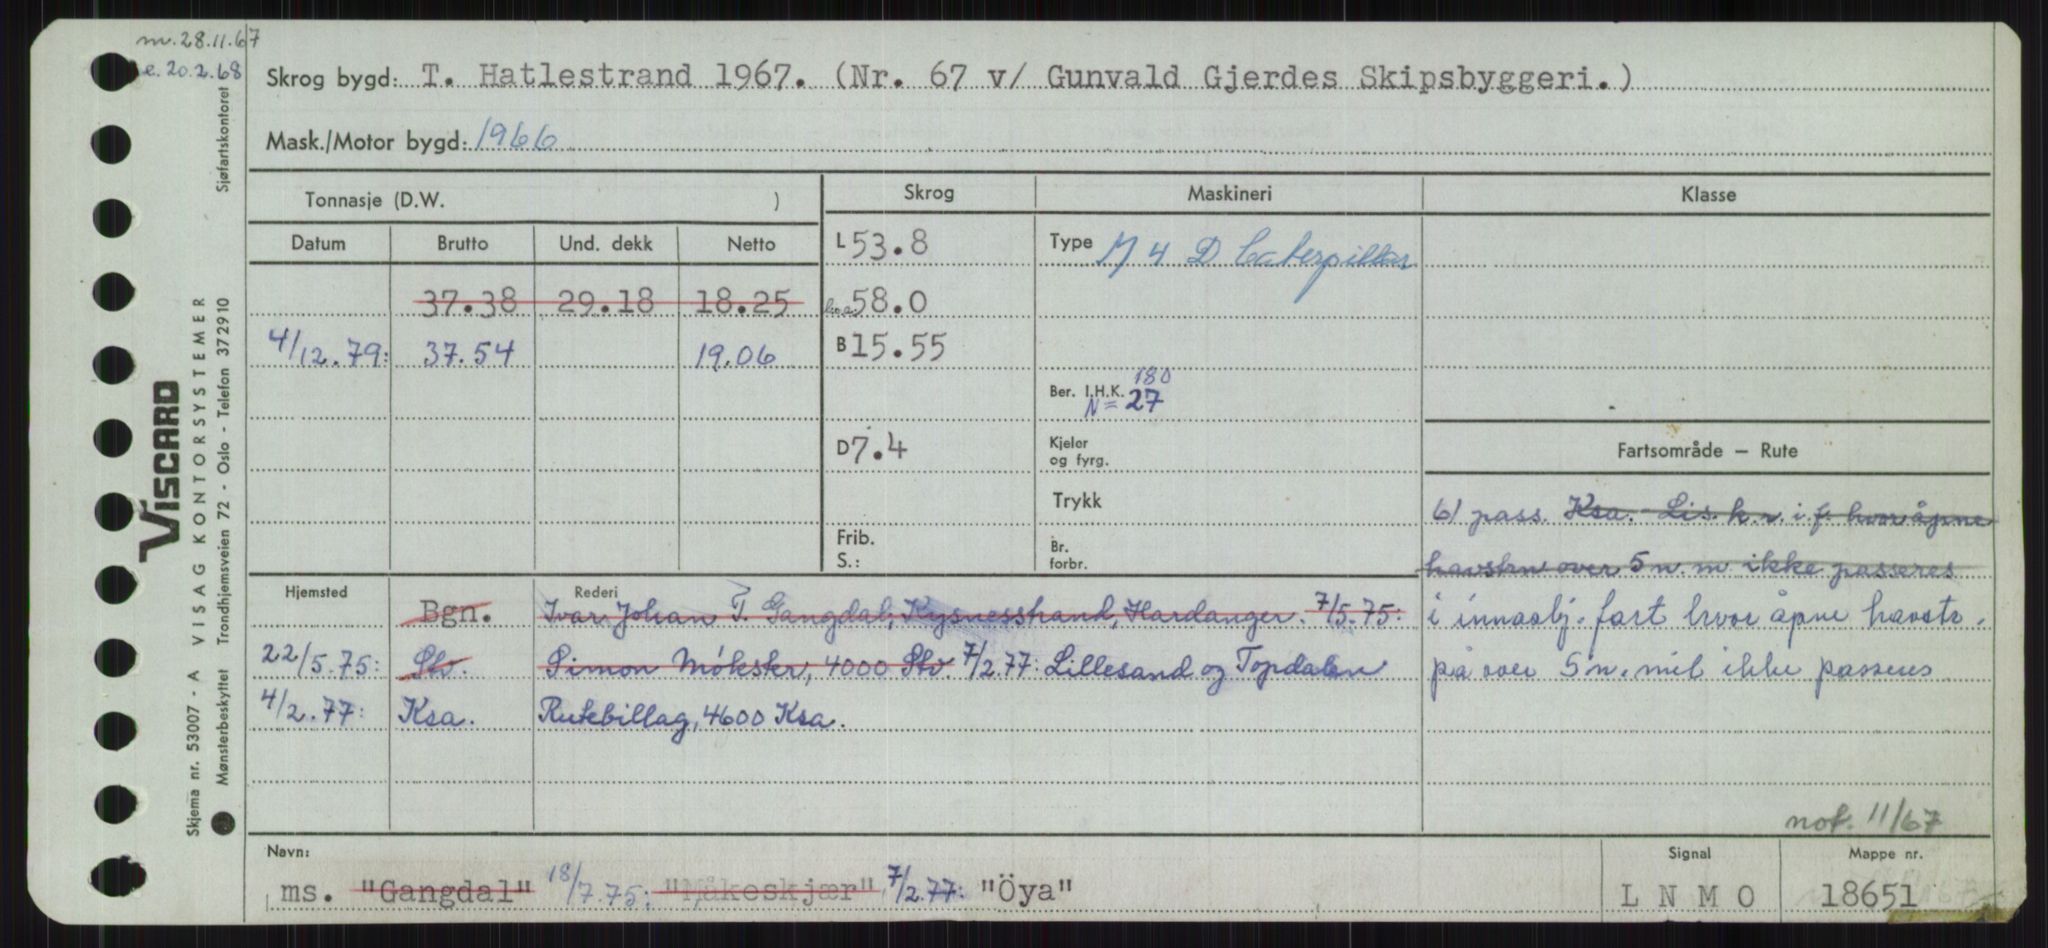 m. 28.11.67
e. 20.2.68
Skrog bygd: T. Hatlestrand 1967. (Nr. 67 v/ Gunvald Gjerdes Skipsbyggeri.)
Mask./Motor bygd: 1966
Tonnasje (D.W. ) Skrog Maskineri Klasse
Datum Brutto Und. dekk Netto L 53.8 Type M 4 D Caterpillar
37.38 29.18 18.25 58.0
4/12.79: 37.54 19.06 B 15.55
180
Ber. I.H.K. N= 27
D 7.4 Kjeler og fyrg. Fartsområde — Rute
Trykk 61 pass. Ksa. - Lis. k.r. i f. hvor åpne
Frib. Br. havstrn over 5 n. m ikke passeres
S.: forbr.
Hjemsted Rederi
Bgn. Ivar Johan T. Gangdal, Kysnesstrand, Hardanger. 7/5.75: i innaskj. fart hvor åpne havstr.
22/5.75: Stv. Simon Møkster, 4000 Stv. 7/2.77: Lillesand og Topdalen på over 5 n. mil ikke passeres
4/2.77: Ksa. Rutebillag, 4600 Ksa.
not. 11/67
Navn: Signal Mappe nr.
ms. "Gangdal" 18/7.75: "Håkeskjær" 7/2.77: "Öya" L N M O 18651
Sjøfartskontoret
VISCARD
VISAG KONTORSYSTEMER
Skjema nr. 53007 - A
Mønsterbeskyttet Trondhjemsveien 72 - Oslo - Telefon 372910